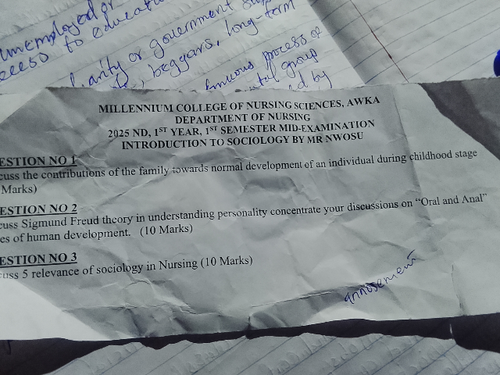 unemployed or
access to education
charity or government
beggars, long-term
process of
group
by
MILLENNIUM COLLEGE OF NURSING SCIENCES, AWKA
DEPARTMENT OF NURSING
2025 ND, 1ST YEAR, 1ST SEMESTER MID-EXAMINATION
INTRODUCTION TO SOCIOLOGY BY MR NWOSU
ESTION NO 1
cuss the contributions of the family towards normal development of an individual during childhood stage
Marks)
ESTION NO 2
cuss Sigmund Freud theory in understanding personality concentrate your discussions on “Oral and Anal”
es of human development. (10 Marks)
ESTION NO 3
cuss 5 relevance of sociology in Nursing (10 Marks)